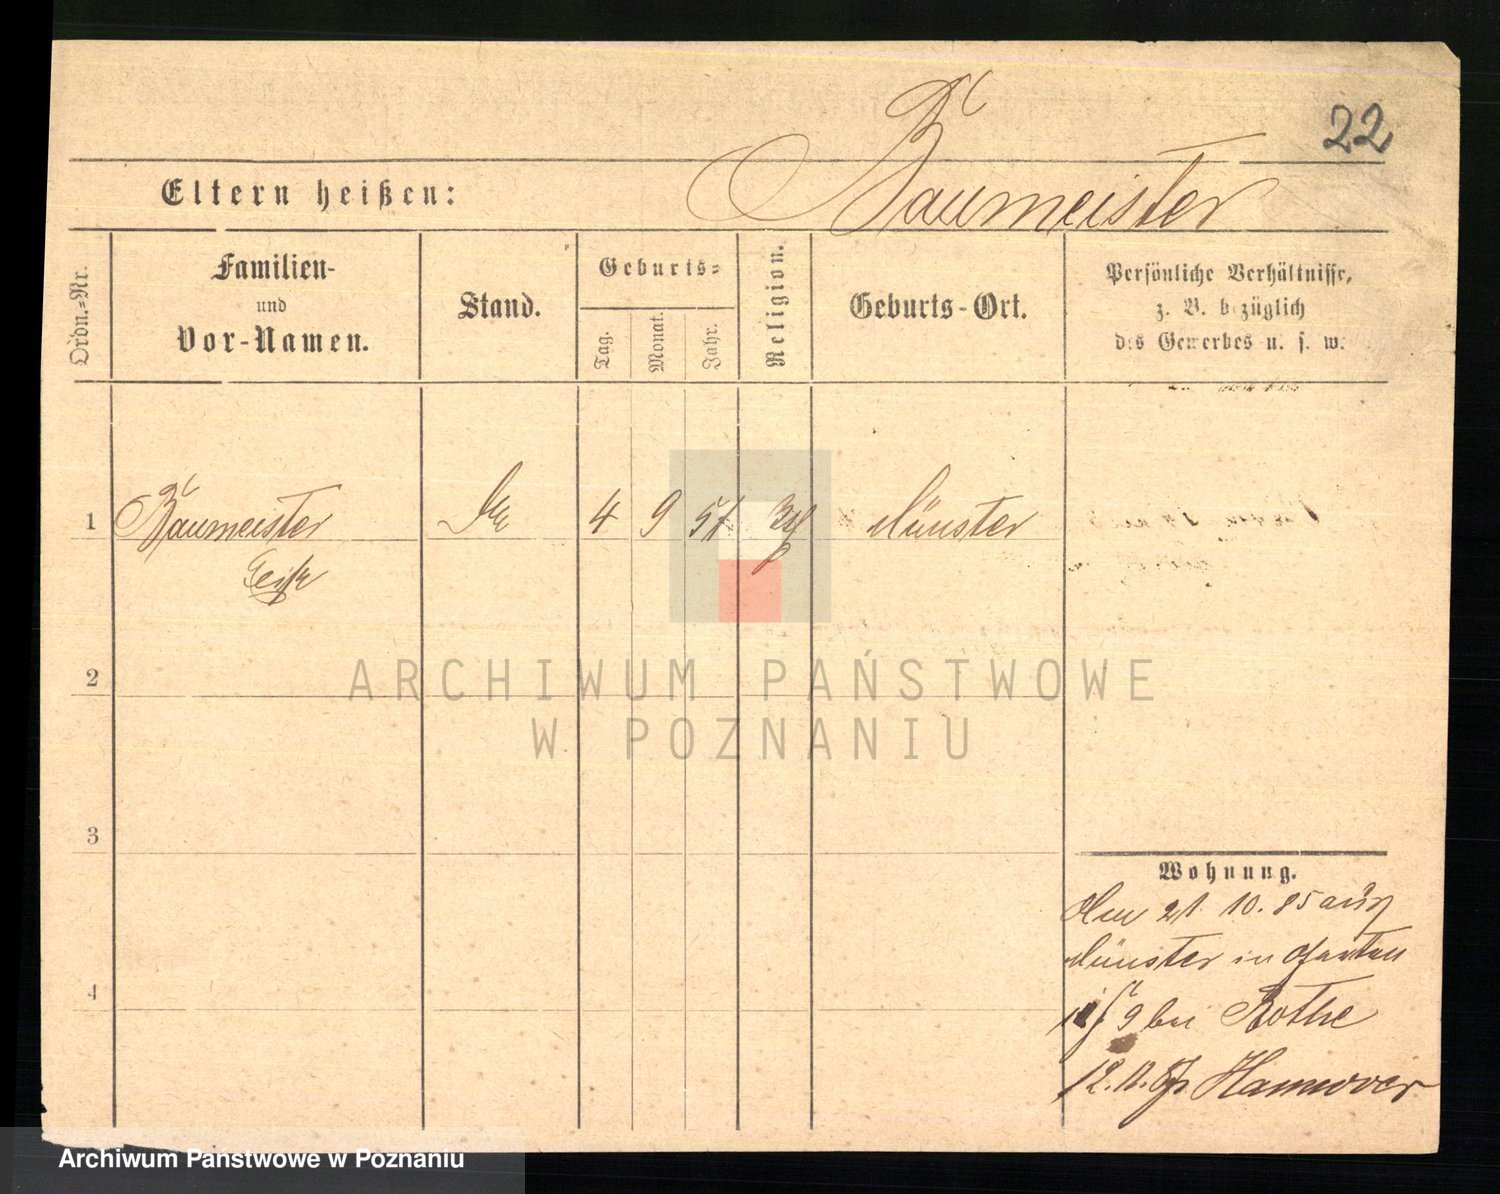 22
Baumeister
Eltern heißen:
Ordn.-Nr.
Familien-
und
Vor-Namen.
Stand.
Geburts=
Tag.
Monat.
Jahr.
Religion.
Geburts-Ort.
Persönliche Verhältnisse,
z. B. bezüglich
des Gewerbes u. s. w.
1
Baumeister
4
9
57
Münster
2
3
4
ARCHIWUM PAŃSTWOWE
W POZNANIU
Wohnung.
21. 10. 85 aus
Münster in
9 bei Rothe
Hannover
Archiwum Państwowe w Poznaniu